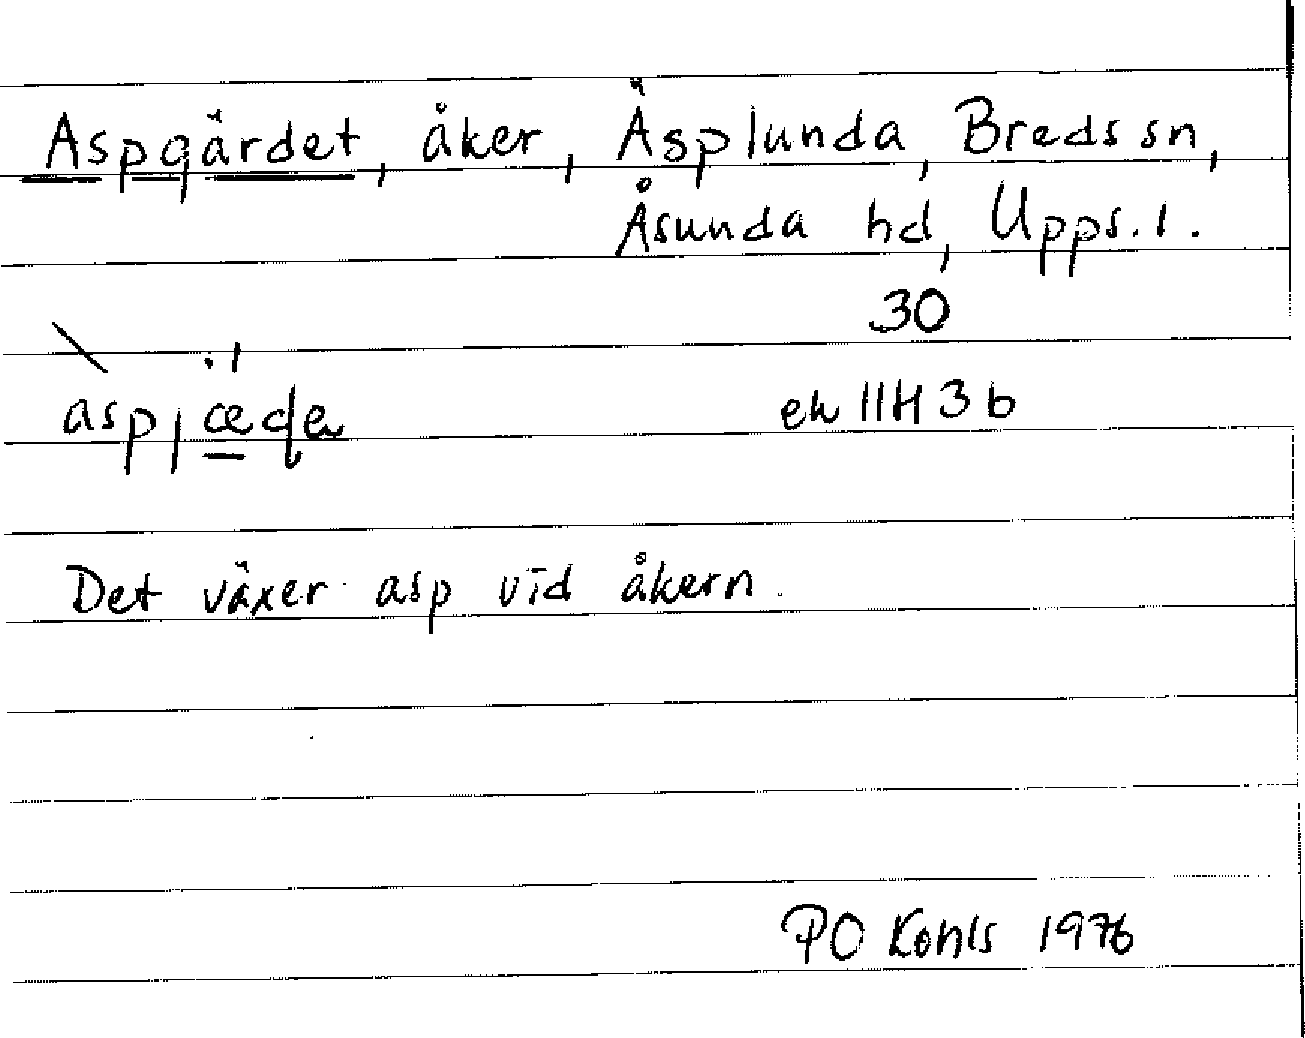 Aspgärdet, åker, Äsplunda, Breds sn,
Åsunda hd, Upps. l.
30
ek 11H 3b
Det växer asp vid åkern.
PO 1976